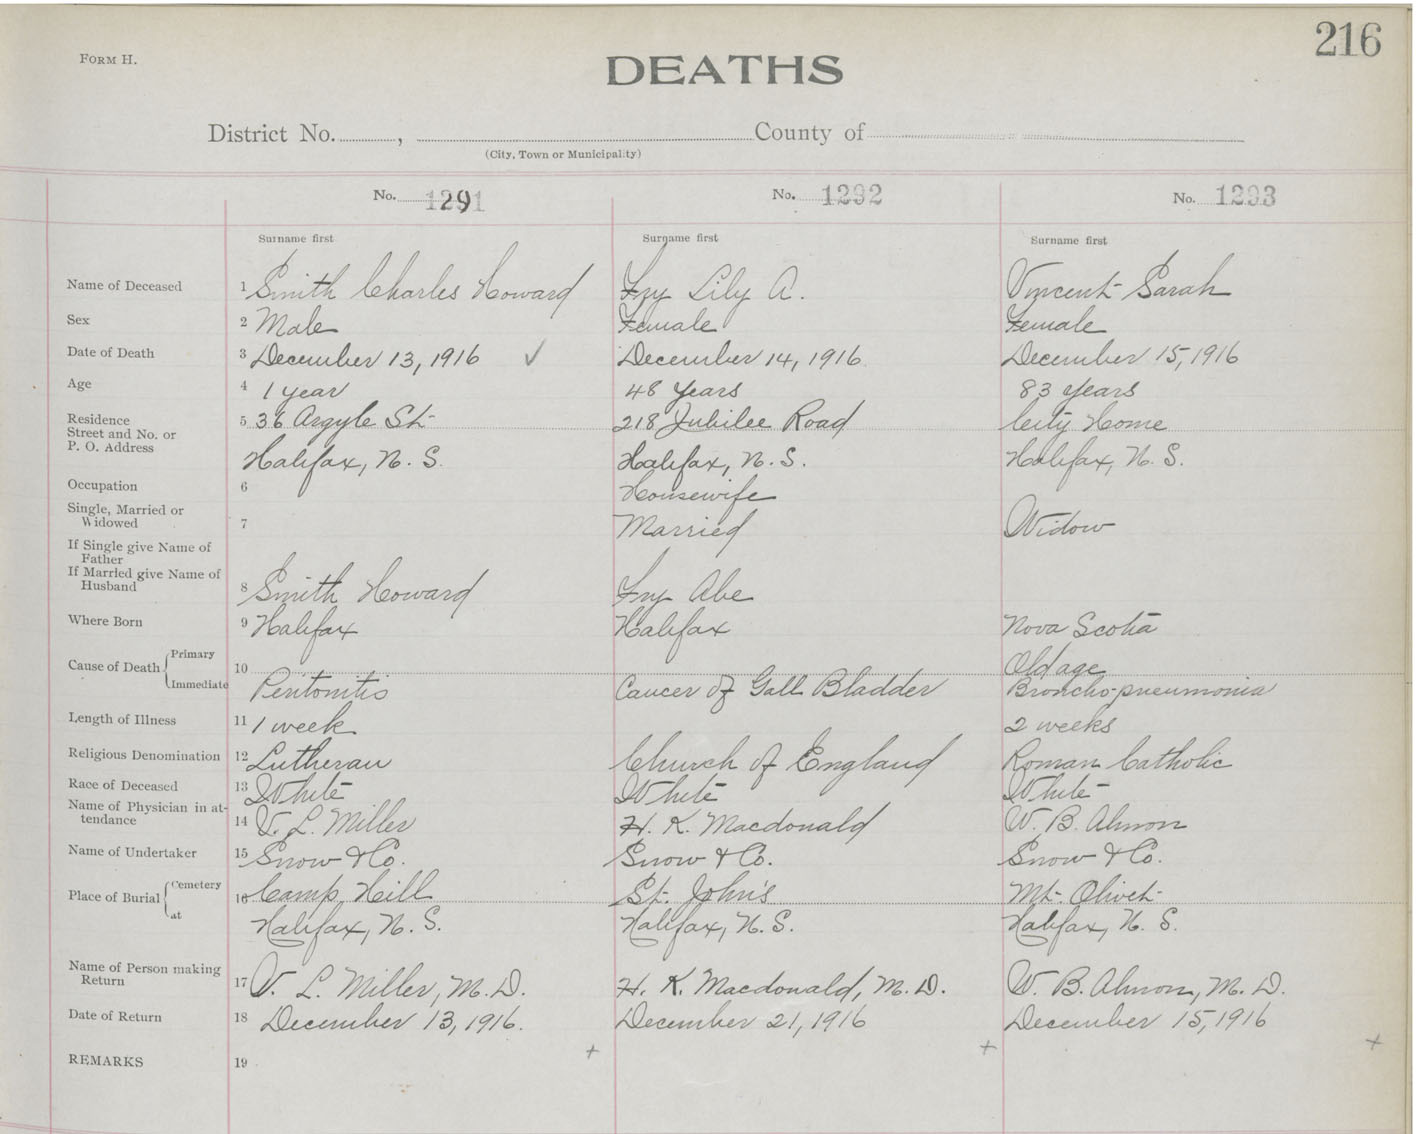 216
FORM H.
DEATHS
District No. , County of
(City, Town or Municipality)
No. 1291 No. 1292 No. 1293
Surname first Surname first Surname first
Name of Deceased 1 Smith Charles Howard Fry Lily A. Vincent Sarah
Sex 2 Male Female Female
Date of Death 3 December 13, 1916 ✓ December 14, 1916 December 15, 1916
Age 4 1 year 48 Years 83 years
Residence 5 36 Argyle St 218 Jubilee Road City Home
Street and No. or
P. O. Address Halifax, N. S. Halifax, N. S. Halifax, N. S.
Occupation 6 Housewife
Single, Married or
Widowed 7 Married Widow
If Single give Name of
Father
If Married give Name of
Husband 8 Smith Howard Fry Abe
Where Born 9 Halifax Halifax Nova Scotia
Cause of Death { Primary 10 Old age
Immediate Peritonitis Cancer of Gall Bladder Broncho-pneumonia
Length of Illness 11 1 week 2 weeks
Religious Denomination 12 Lutheran Church of England Roman Catholic
Race of Deceased 13 White White White
Name of Physician in at-
tendance 14 V. L. Miller H. K. Macdonald W. B. Almon
Name of Undertaker 15 Snow & Co. Snow & Co. Snow & Co.
Place of Burial { Cemetery 16 Camp Hill St. John's Mt. Olivet
at Halifax, N. S. Halifax, N. S. Halifax, N. S.
Name of Person making
Return 17 V. L. Miller, M. D. H. K. Macdonald, M. D. W. B. Almon, M. D.
Date of Return 18 December 13, 1916. December 21, 1916 December 15, 1916
REMARKS 19 + + +